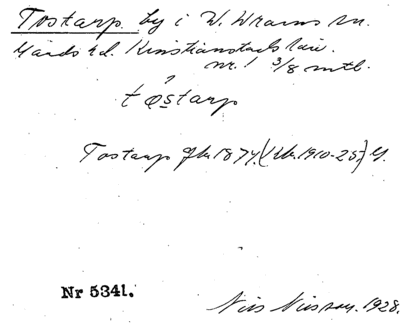 Tostarp. by i W. Wrams sn.
Gärds hd. Kristianstads län.
nr. 1 3/8 mtl.
t østarp
Tostarp Gk 1874. (Uk. 1910-25) G.
Nr 5341.
Nils Nilsson. 1928.